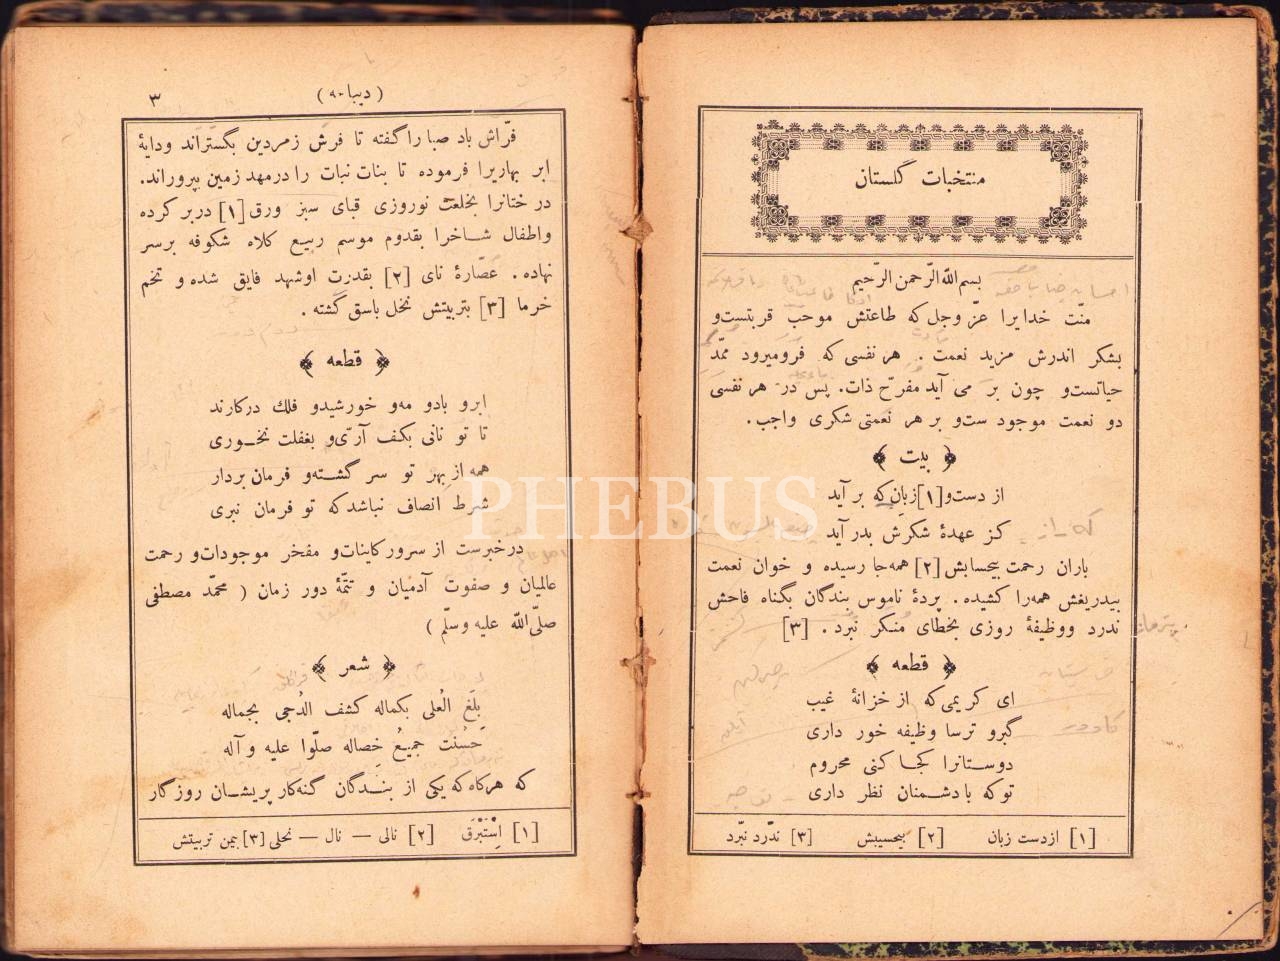 منتخبات گلستان
بسم الله الرّحمن الرّحیم
منّت خدایرا عزّ وجل که طاعتش موجب قربتست و
بشکر اندرش مزید نعمت . هر نفسی که فرومیرود ممّد
حیاتست و چون بر می آید مفرّح ذات. پس در هر نفسی
دو نعمت موجود ست و بر هر نعمتی شکری واجب .
﴿ بیت ﴾
از دست و [۱] زبان که بر آید
کز عهدۀ شکرش بدر آید
باران رحمت بیحسابش [۲] همه‌جا رسیده و خوان نعمت
بیدریغش همه‌را کشیده . پردۀ ناموس بندگان بگناه فاحش
ندرد و وظیفۀ روزی بخطای منکر نبرد . [۳]
﴿ قطعه ﴾
ای کریمی که از خزانۀ غیب
گبرو ترسا وظیفه خور داری
دوستانرا کجا کنی محروم
توکه بادشمنان نظر داری
[۱] ازدست زبان [۲] بیحسیبش [۳] ندّرد نبّرد
( دیباجه ) ۳
فرّاش باد صبا را گفته تا فرش زمردین بگستراند ودایۀ
ابر بهاریرا فرموده تا بنات نبات را درمهد زمین بپروراند.
درختانرا بخلعت نوروزی قبای سبز ورق [۱] دربر کرده
واطفال شاخرا بقدوم موسم ربیع کلاه شکوفه برسر
نهاده . عصّارۀ نای [۲] بقدرت اوشهد فایق شده و تخم
خرما [۳] بتربیتش نخل باسق گشته .
﴿ قطعه ﴾
ابرو بادو مه‌و خورشیدو فلك درکارند
تا تو نانی بکف آری و بغفلت نخوری
همه از بهر تو سر گشته‌و فرمان بردار
شرط انصاف نباشد که تو فرمان نبری
درخبرست از سرور کاینات و مفخر موجودات و رحمت
عالمیان و صفوت آدمیان و تتمّۀ دور زمان ( محمّد مصطفی
صلّی الله علیه وسلّم )
﴿ شعر ﴾
بَلَغ العُلی بکماله کشف الدُجی بجماله
حَسُنَت جمیعُ خِصاله صلّوا علیه و آله
که هرکاه که یکی از بندگان گنه‌کار پریشان روزگار
[۱] اِسْتَبْرَق [۲] نالی — نال — نحلی [۳] بیمن تربیتش
PHEBUS